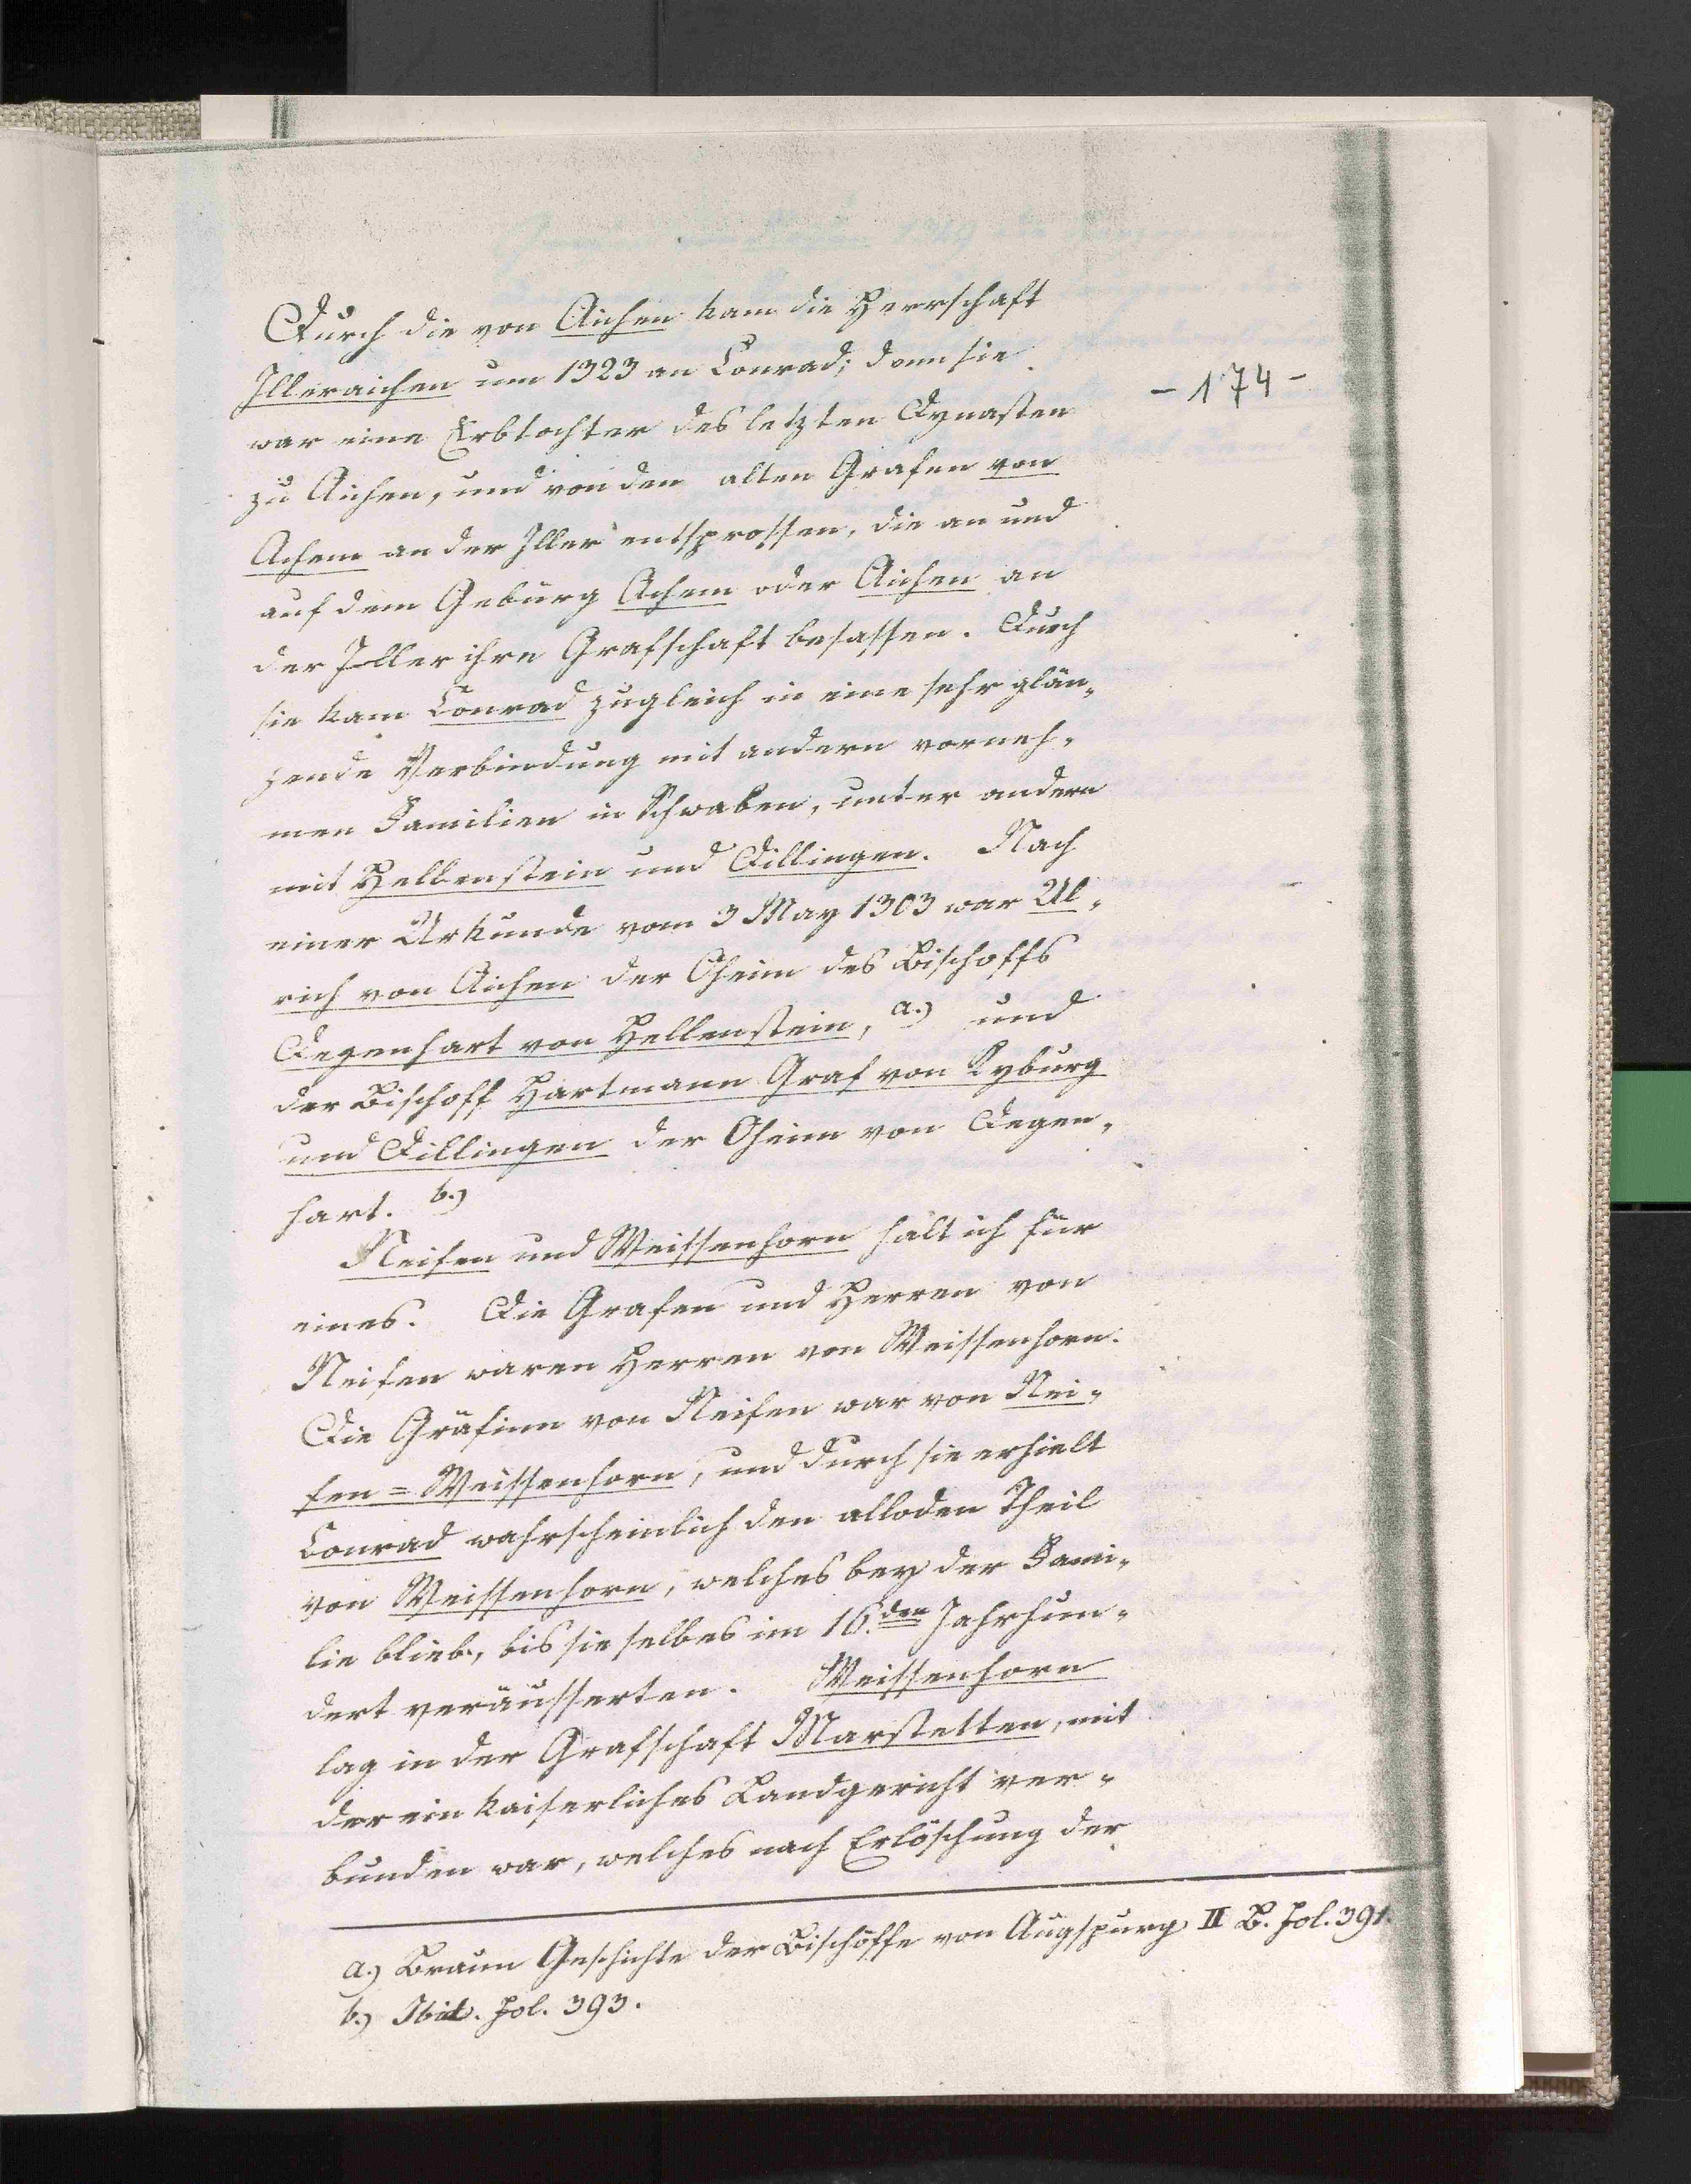 Durch die von Aichen kam die Herrschaft
Illeraichen um 1323 an Conrad; denn sie
- 174 -
war eine Erbtochter des letzten Dynasten
zu Aichen, und von den alten Grafen von
Achem an der Iller entsprossen, die an und
auf dem Gebürg Achem oder Aichen an
der Iller ihre Grafschaft besassen. Durch
sie kam Conrad zugleich in eine sehr glän-
zende Verbindung mit andern vorneh-
men Familien in Schwaben, unter andern
mit Hellenstein und Dillingen. Nach
einer Urkunde vom 3 May 1303 war Ul-
rich von Aichen der Oheim des Bischoffs
Degenhart von Hellenstein, a.) und
der Bischoff Hartmann Graf von Kyburg
und Dillingen der Oheim von Degen-
hart. b.)
Neifen und Weissenhorn halt ich für
eines. Die Grafen und Herren von
Neifen waren Herren von Weissenhorn.
Die Gräfinn von Neifen war von Nei-
fen = Weissenhorn, und durch sie erhielt
Conrad wahrscheinlich den alloden Theil
von Weissenhorn, welches bey der Fami-
lie blieb, bis sie selbes im 16.den Jahrhun-
dert veräusserten. Weissenhorn
lag in der Grafschaft Marstetten, mit
der ein kaiserliches Landgericht ver-
bunden war, welches nach Erlöschung der
a.) Braun Geschichte der Bischöffe von Augspurg II B. fol. 391.
b.) Ibid. fol. 393.